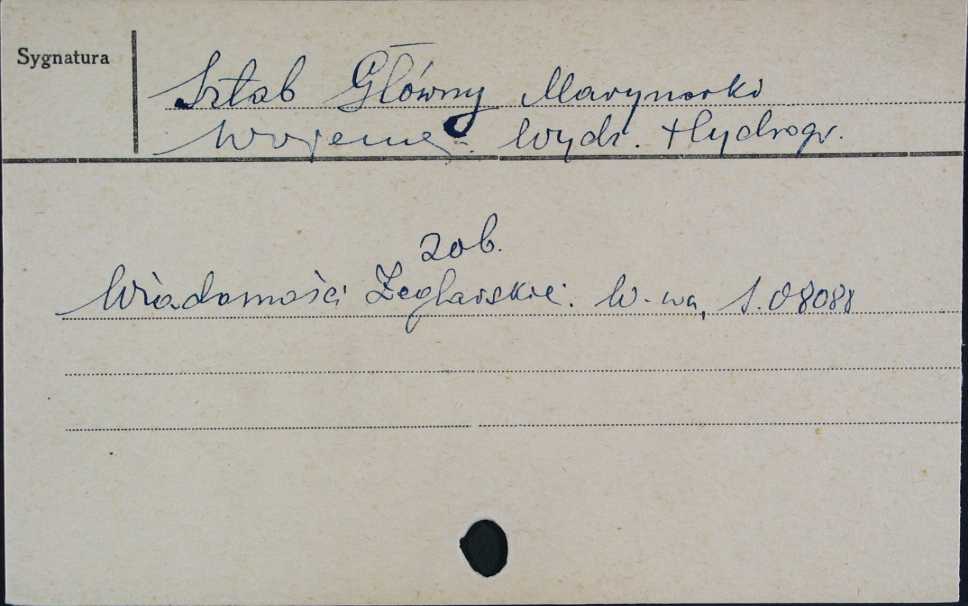 Sygnatura
Sztab Główny Marynarki
Wojennej. Wydz. Hydrogr.
zob.
Wiadomości Żeglarskie. W-wa, S. 08088